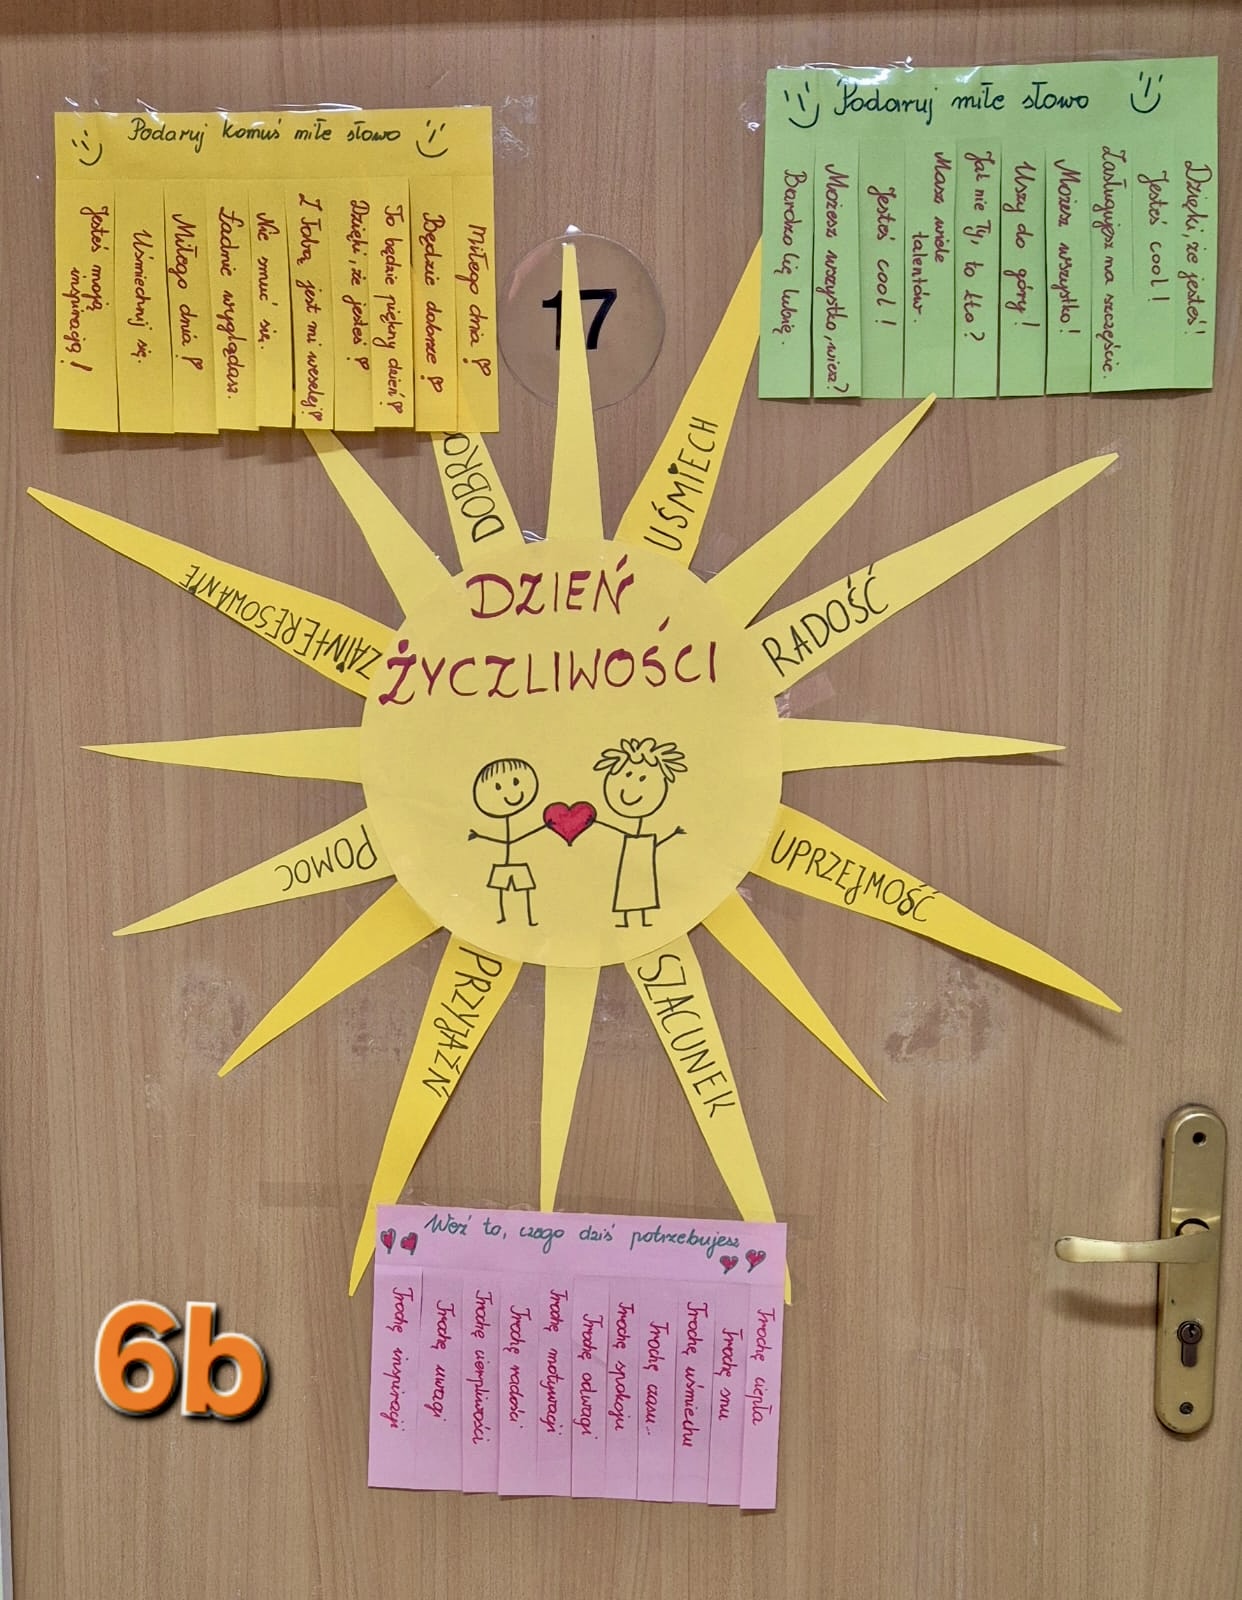 Podaruj komuś miłe słowo
Miłego dnia!
Będzie dobrze!
To będzie piękny dzień!
Dzięki, że jesteś!
Z Tobą jest mi weselej!
Nie smuć się.
Ładnie wyglądasz.
Miłego dnia!
Uśmiechnij się.
Jesteś moją
inspiracją!
Podaruj miłe słowo
Dzięki, że jesteś!
Jesteś cool!
Zasługujesz na szczęście.
Możesz wszystko!
Uszy do góry!
Jak nie Ty, to kto?
Masz wiele
talentów.
Jesteś cool!
Możesz wszystko, wiesz?
Bardzo Cię lubię.
17
DOBRO
UŚMIECH
RADOŚĆ
UPRZEJMOŚĆ
SZACUNEK
PRZYJAŹŃ
POMOC
ZAINTERESOWANIE
DZIEŃ
ŻYCZLIWOŚCI
Weź to, czego dziś potrzebujesz
Trochę ciepła
Trochę snu
Trochę uśmiechu
Trochę czasu..
Trochę spokoju
Trochę odwagi
Trochę motywacji
Trochę radości
Trochę cierpliwości
Trochę uwagi
Trochę inspiracji
6b